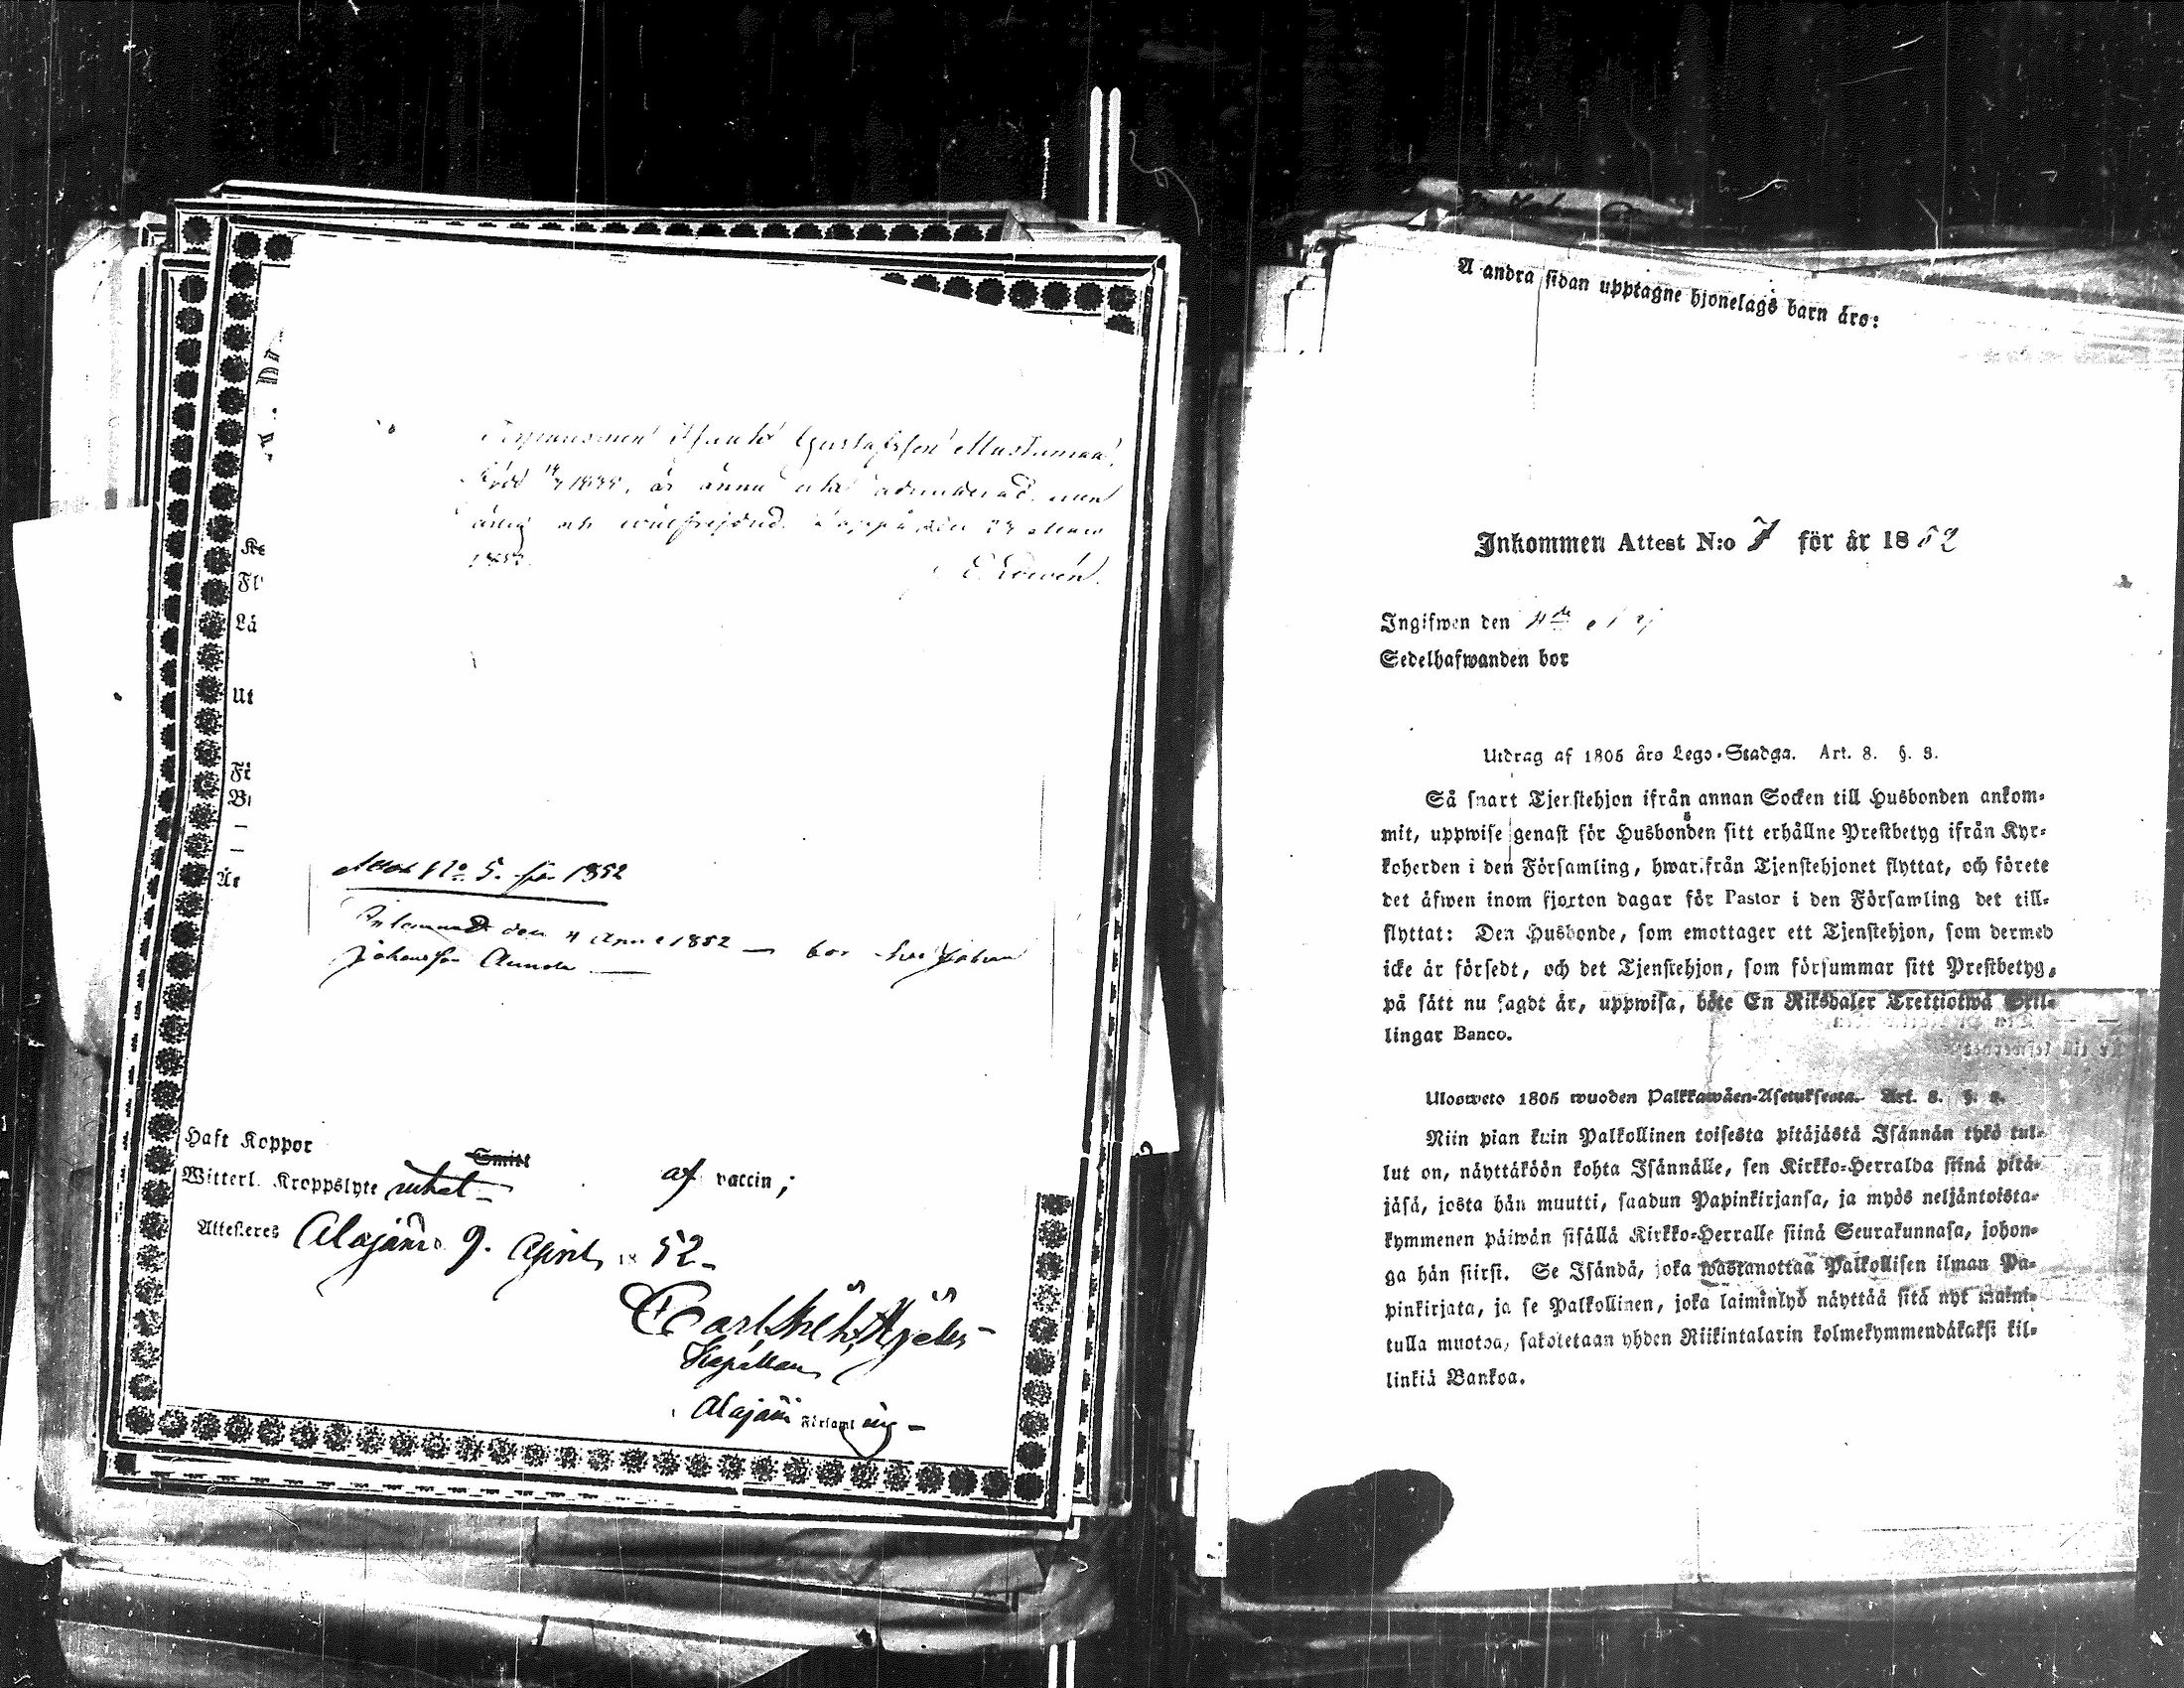 Gustafsson Mustamaa,
Född 14/7 1835, är ännu icke admitterad, men
ärlig och wälfrejdad. Lappo den 28 Mars
1852.
E. Lowén.
Attest No 5. för 1852
den 4 1852 — bor hos Johan
Johansson
Ke
Fl
Lä
Ut
Fi
B
Är
Haft Koppor Smitt af vaccin;
Witterl. Kroppslyte intet –
Attesteres Alajärvi 9. April 1852 –
Carl
Kapellan
Alajärvi Församling –
A andra sidan upptagne hjonelags barn äro:
Inkommen Attest N:o 7 för år 1852
Ingifwen den 4de
Sedelhafwanden bor
Utdrag af 1805 års Lego-Stadga. Art. 8. §. 3.
Så snart Tjenstehjon ifrån annan Socken till Husbonden ankom-
mit, uppwise genast för Husbonden sitt erhållne Prestbetyg ifrån Kyr-
koherden i den Församling, hwarifrån Tjenstehjonet flyttat, och förete
det äfwen inom fjorton dagar för Pastor i den Församling det till-
flyttat: Den Husbonde, som emottager ett Tjenstehjon, som dermed
icke är försedt, och det Tjenstehjon, som försummar sitt Prestbetyg,
på sätt nu sagdt är, uppwisa, böte En Riksdaler Trettiotwå Skil-
lingar Banco.
Uloswето 1805 wuoden Palkkawäen-Asetuksesta. Art. 8. §. 3.
Niin pian kuin Palkollinen toisesta pitäjästä Isännän tykö tul-
lut on, näyttäköön kohta Isännälle, sen Kirkko-Herralda siinä pitä-
jäsä, josta hän muutti, saadun Papinkirjansa, ja myös neljäntoista-
kymmenen päiwän sisällä Kirkko-Herralle siinä Seurakunnasa, johon-
ga hän siirsi. Se Isändä, joka wastanottaa Palkollisen ilman Pa-
pinkirjata, ja se Palkollinen, joka laiminlyö näyttää sitä nyt maini-
tulla muotoa, sakotetaan yhden Riikintalarin kolmekymmendäkaksi kil-
linkiä Bankoa.